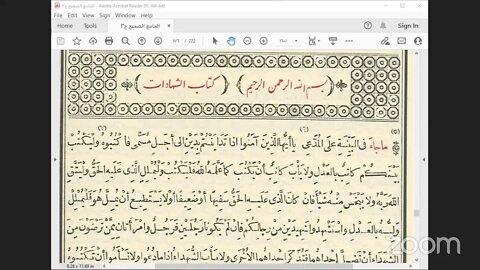 الجامع الصحيح ج٣ - Adobe Acrobat Reader DC (64-bit)
Home Tools الجامع الصحيح ج٣ Sign In
﴿بسم الله الرحمن الرحيم﴾ ﴿كتاب الشهادات﴾
(٥) (٦) (٦)
ما جاءَ في البَيِّنَةِ على المُدَّعِي يا أَيُّها الَّذِينَ آمَنُوا إذا تَدايَنْتُمْ بِدَيْنٍ إلى أَجَلٍ مُسَمًّى فاكْتُبُوهُ ولْيَكْتُبْ
بَيْنَكُمْ كاتِبٌ بِالعَدْلِ ولا يَأْبَ كاتِبٌ أَنْ يَكْتُبَ كما عَلَّمَهُ اللهُ فَلْيَكْتُبْ ولْيُمْلِلِ الَّذِي عَلَيْهِ الحَقُّ ولْيَتَّقِ
اللهَ رَبَّهُ ولا يَبْخَسْ مِنْهُ شَيْئًا فإنْ كانَ الَّذِي عَلَيْهِ الحَقُّ سَفِيهًا أَوْ ضَعِيفًا أَوْ لا يَسْتَطِيعُ أَنْ يُمِلَّ هُوَ فَلْيُمْلِلْ
وَلِيُّهُ بِالعَدْلِ واسْتَشْهِدُوا شَهِيدَيْنِ مِنْ رِجالِكُمْ فإنْ لَمْ يَكُونا رَجُلَيْنِ فَرَجُلٌ وامْرَأَتانِ مِمَّنْ تَرْضَوْنَ مِنَ
الشُّهَداءِ أَنْ تَضِلَّ إحْداهُما فَتُذَكِّرَ إحْداهُما الأُخْرَى ولا يَأْبَ الشُّهَداءُ إذا ما دُعُوا ولا تَسْأَمُوا أَنْ تَكْتُبُوهُ
8.28 x 11.69 in
zoom